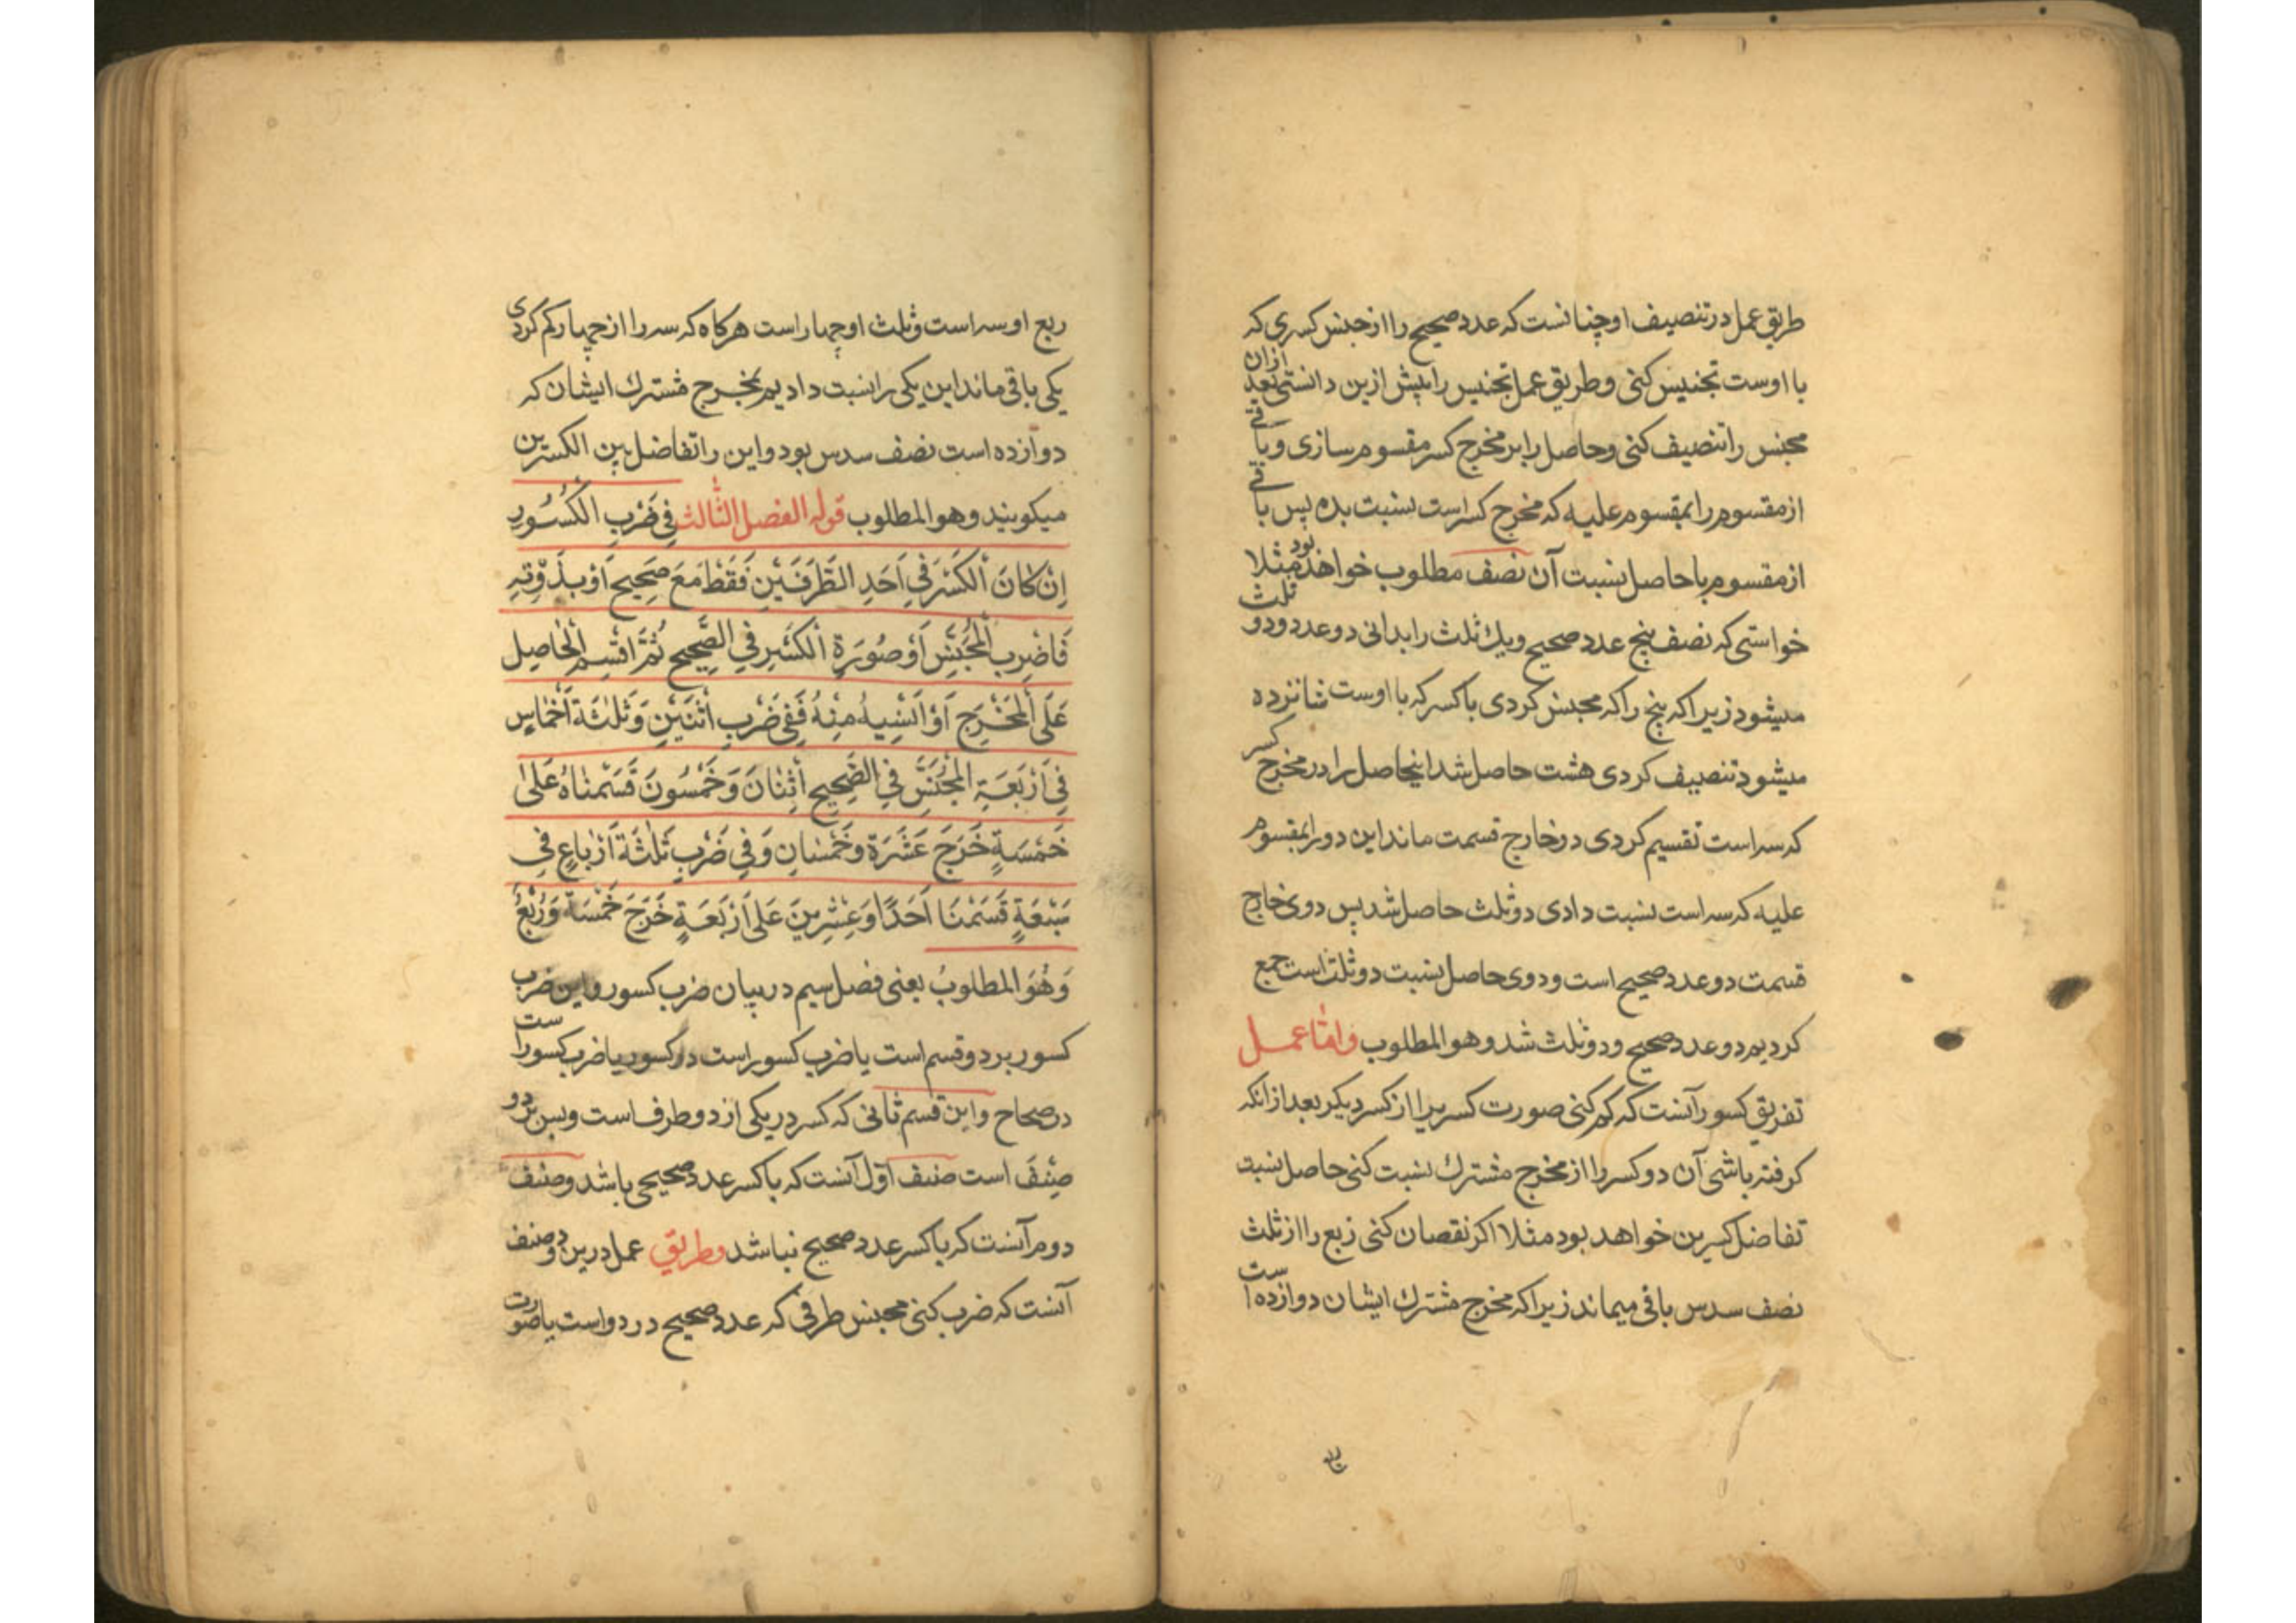 طریق عمل در تنصیف او چنانست که عدد صحیح را از جنس کسری که
با اوست تجنیس کنی و طریق عمل تجنیس را پیش ازین دانستی بعد ازان
مجنس را تنصیف کنی و حاصل را بر مخرج کسر مقسوم سازی و باقی
از مقسوم را بمقسوم علیه که مخرج کسر است نسبت بده پس باقی
از مقسوم با حاصل نسبت آن نصف مطلوب خواهد بود مثلا
خواستی که نصف پنج عدد صحیح و یك ثلث را بدانی دو عدد و دو ثلث
میشود زیرا که پنج را که مجنس کردی با کسر که با اوست شانزده
میشود تنصیف کردی هشت حاصل شد اینحاصل را در مخرج کسر
که سه است تقسیم کردی دو خارج قسمت ماند این دو را بمقسوم
علیه که سه است نسبت دادی دو ثلث حاصل شد پس دوی خارج
قسمت دو عدد صحیح است و دوی حاصل نسبت دو ثلث است جمع
کردیم دو عدد صحیح و دو ثلث شد وهو المطلوب واما عمل
تفریق کسور آنست که کم کنی صورت کسریرا از کسر دیگر بعد ازانکه
کرفته باشی آن دو کسر را از مخرج مشترك نسبت کنی حاصل نسبت
تفاضل کسرین خواهد بود مثلا اکر نقصان کنی ربع را از ثلث
نصف سدس باقی میماند زیرا که مخرج مشترك ایشان دوازده است
ربع او سه است و ثلث او چهار است هرکاه که سه را از چهار کم کردی
یکی باقی ماند این یکی را نسبت دادیم بمخرج مشترك ایشان که
دوازده است نصف سدس بود و این را تفاضل بین الکسرین
میکویند وهو المطلوب قوله الفصل الثالث فِی ضَرْبِ الْکُسُورِ
اِنْ کَانَ الْکَسْرُ فِی اَحَدِ الطَّرَفَیْنِ فَقَطْ مَعَ صَحِیحٍ اَوْ بِدُونِهِ
فَاضْرِبِ الْمُجَنَّسَ اَوْ صُورَةَ الْکَسْرِ فِی الصَّحِیحِ ثُمَّ اقْسِمِ الْحَاصِلَ
عَلَی الْمَخْرَجِ اَوْ انْسِبْهُ مِنْهُ فَفِی ضَرْبِ اثْنَیْنِ وَثَلٰثَةِ اَخْمَاسٍ
فِی اَرْبَعَةٍ الْمُجَنَّسُ فِی الصَّحِیحِ اثْنَانِ وَخَمْسُونَ قَسَمْنَاهُ عَلٰی
خَمْسَةٍ خَرَجَ عَشَرَةٌ وَخُمْسَانِ وَفِی ضَرْبِ ثَلٰثَةِ اَرْبَاعٍ فِی
سَبْعَةٍ قَسَمْنَا اَحَدًا وَعِشْرِینَ عَلَی اَرْبَعَةٍ خَرَجَ خَمْسَةٌ وَرُبْعٌ
وَهُوَ المطلوبُ یعنی فصل سیم در بیان ضرب کسور و این ضرب
کسور بر دو قسم است یا ضرب کسور است در کسور یا ضرب کسور است
در صحاح و این قسم ثانی که کسر در یکی از دو طرف است و بس بر دو
صنف است صنف اوّل آنست که با کسر عدد صحیحی باشد و صنف
دوم آنست که با کسر عدد صحیح نباشد وطریق عمل درین دو صنف
آنست که ضرب کنی مجنس طرفی که عدد صحیح در دو است یا صورت